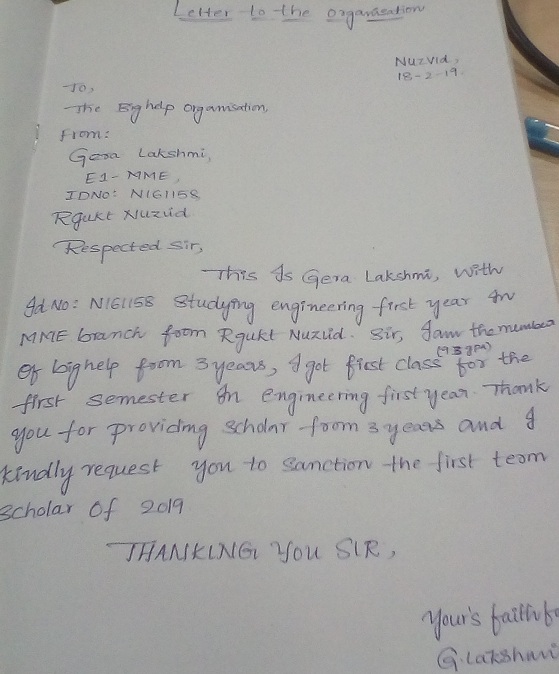 Letter to the organisation
Nuzvid,
18-2-19.
To,
The Big help organisation,
From:
Gera Lakshmi,
E1- MME,
IDNO: N161158
Rgukt Nuzvid
Respected Sir,
This Is Gera Lakshmi, with
Id No: N161158 Studying engineering first year In
MME branch from Rgukt Nuzvid. Sir, Iam the member
Of bighelp from 3 years, I got first class for the
first semester In engineering first year. Thank
you for providing scholar from 3 years and I
kindly request you to sanction the first term
scholar Of 2019
THANKING YOU SIR,
Your's faithf
G.Lakshmi